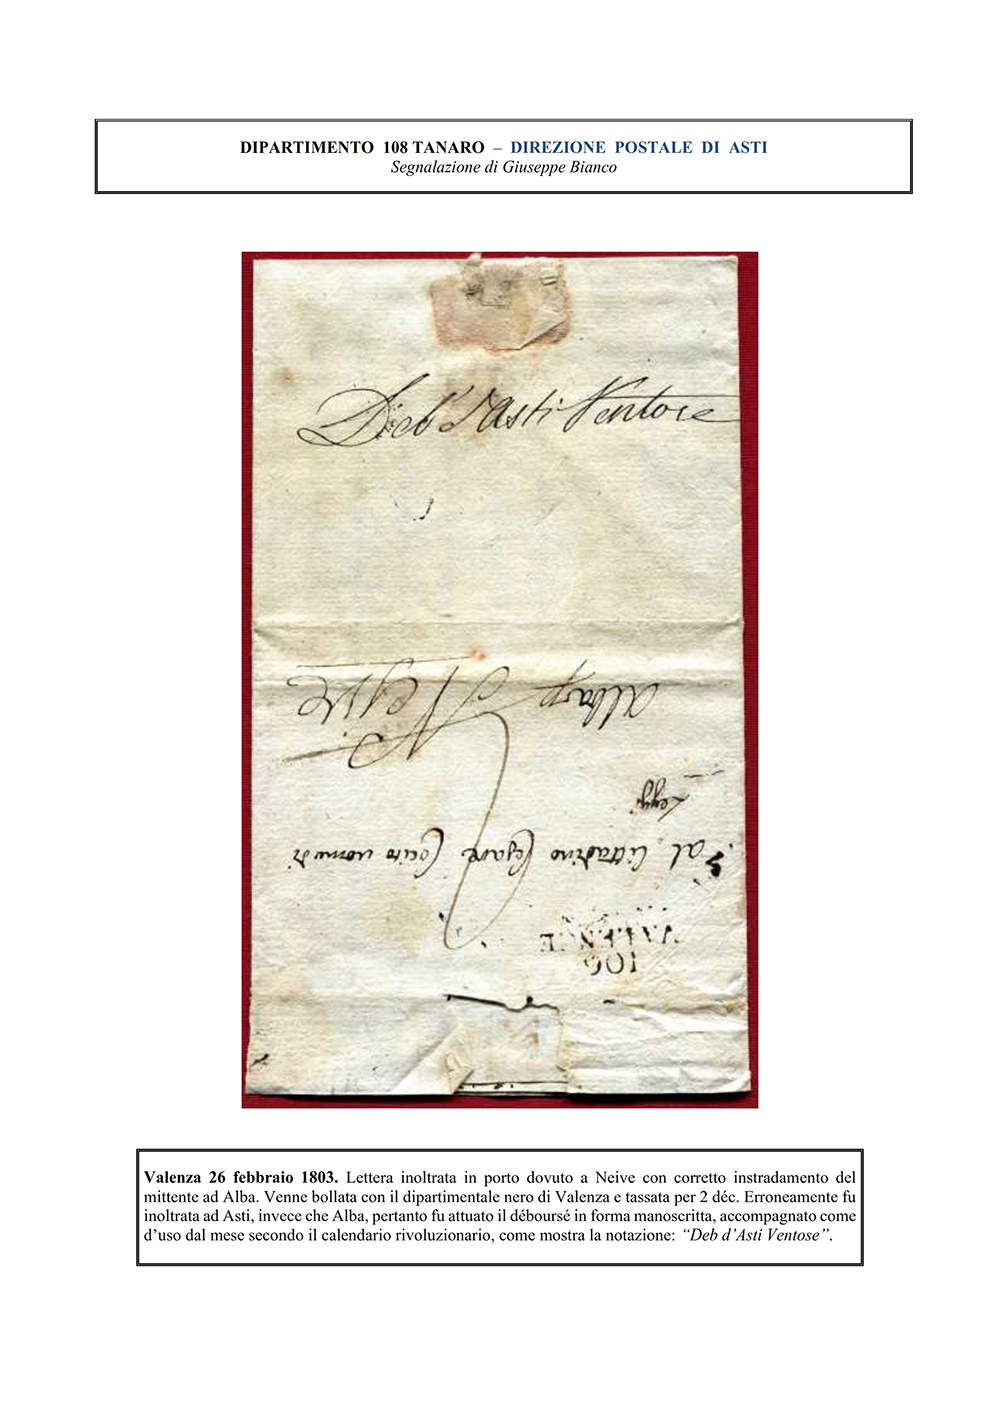 DIPARTIMENTO 108 TANARO – DIREZIONE POSTALE DI ASTI
Segnalazione di Giuseppe Bianco
Deb d'Asti Ventose
Alba p Neive
Leggi
al Cittadino Cesare Cocito uomo di
VALENCE
106
Valenza 26 febbraio 1803. Lettera inoltrata in porto dovuto a Neive con corretto instradamento del
mittente ad Alba. Venne bollata con il dipartimentale nero di Valenza e tassata per 2 déc. Erroneamente fu
inoltrata ad Asti, invece che Alba, pertanto fu attuato il déboursé in forma manoscritta, accompagnato come
d'uso dal mese secondo il calendario rivoluzionario, come mostra la notazione: “Deb d'Asti Ventose”.